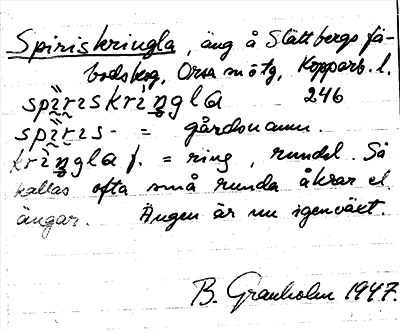 Spiriskringla, äng å Slättbergs fä-
bodskog, Orsa sn ö tg, Kopparb. l.
spiriskriŋgla 246
spiris- = gårdsnamn.
kriŋgla f. = ring, rundel. Så
kallas ofta små runda åkrar el.
ängar. Ängen är nu igenväxt.
B. Granholm 1947.